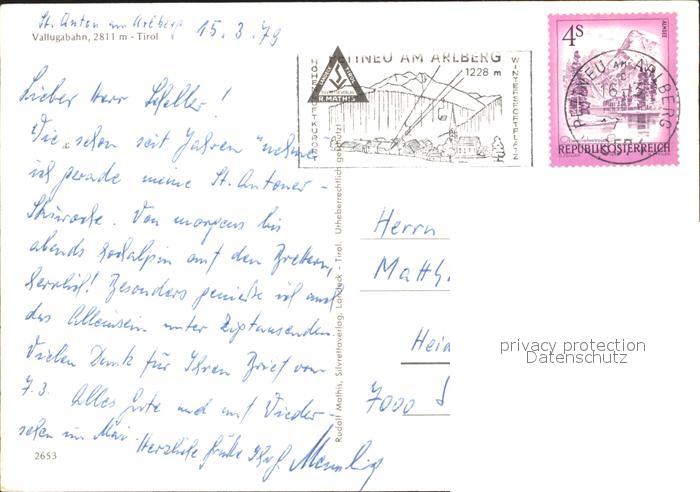 St. Anton am Arlberg 15.3.79
Vallugabahn, 2811 m - Tirol
Lieber Herr Scheller!
Wie schon seit Jahren "nehme
ich gerade meine St. Antoner-
Skiwoche. Von morgens bis
abends hochalpin auf den Brettern,
herrlich! Besonders genieße ich auch
das Alleinsein unter Zigtausenden.
Vielen Dank für Ihren Brief vom
7.3. Alles Gute und auf Wieder-
sehen im Mai
Herzliche Grüße Ihr
2653
Rudolf Mathis, Silvrettaverlag, Landeck - Tirol. Urheberrechtlich geschützt!
R. MATHIS
PETTNEU AM ARLBERG
1228 m
WINTERSPORTPLATZ
4S
ALMSEE
REPUBLIK ÖSTERREICH
PETTNEU AM ARLBERG
Herrn
Matth.
Hein
7000
privacy protection
Datenschutz